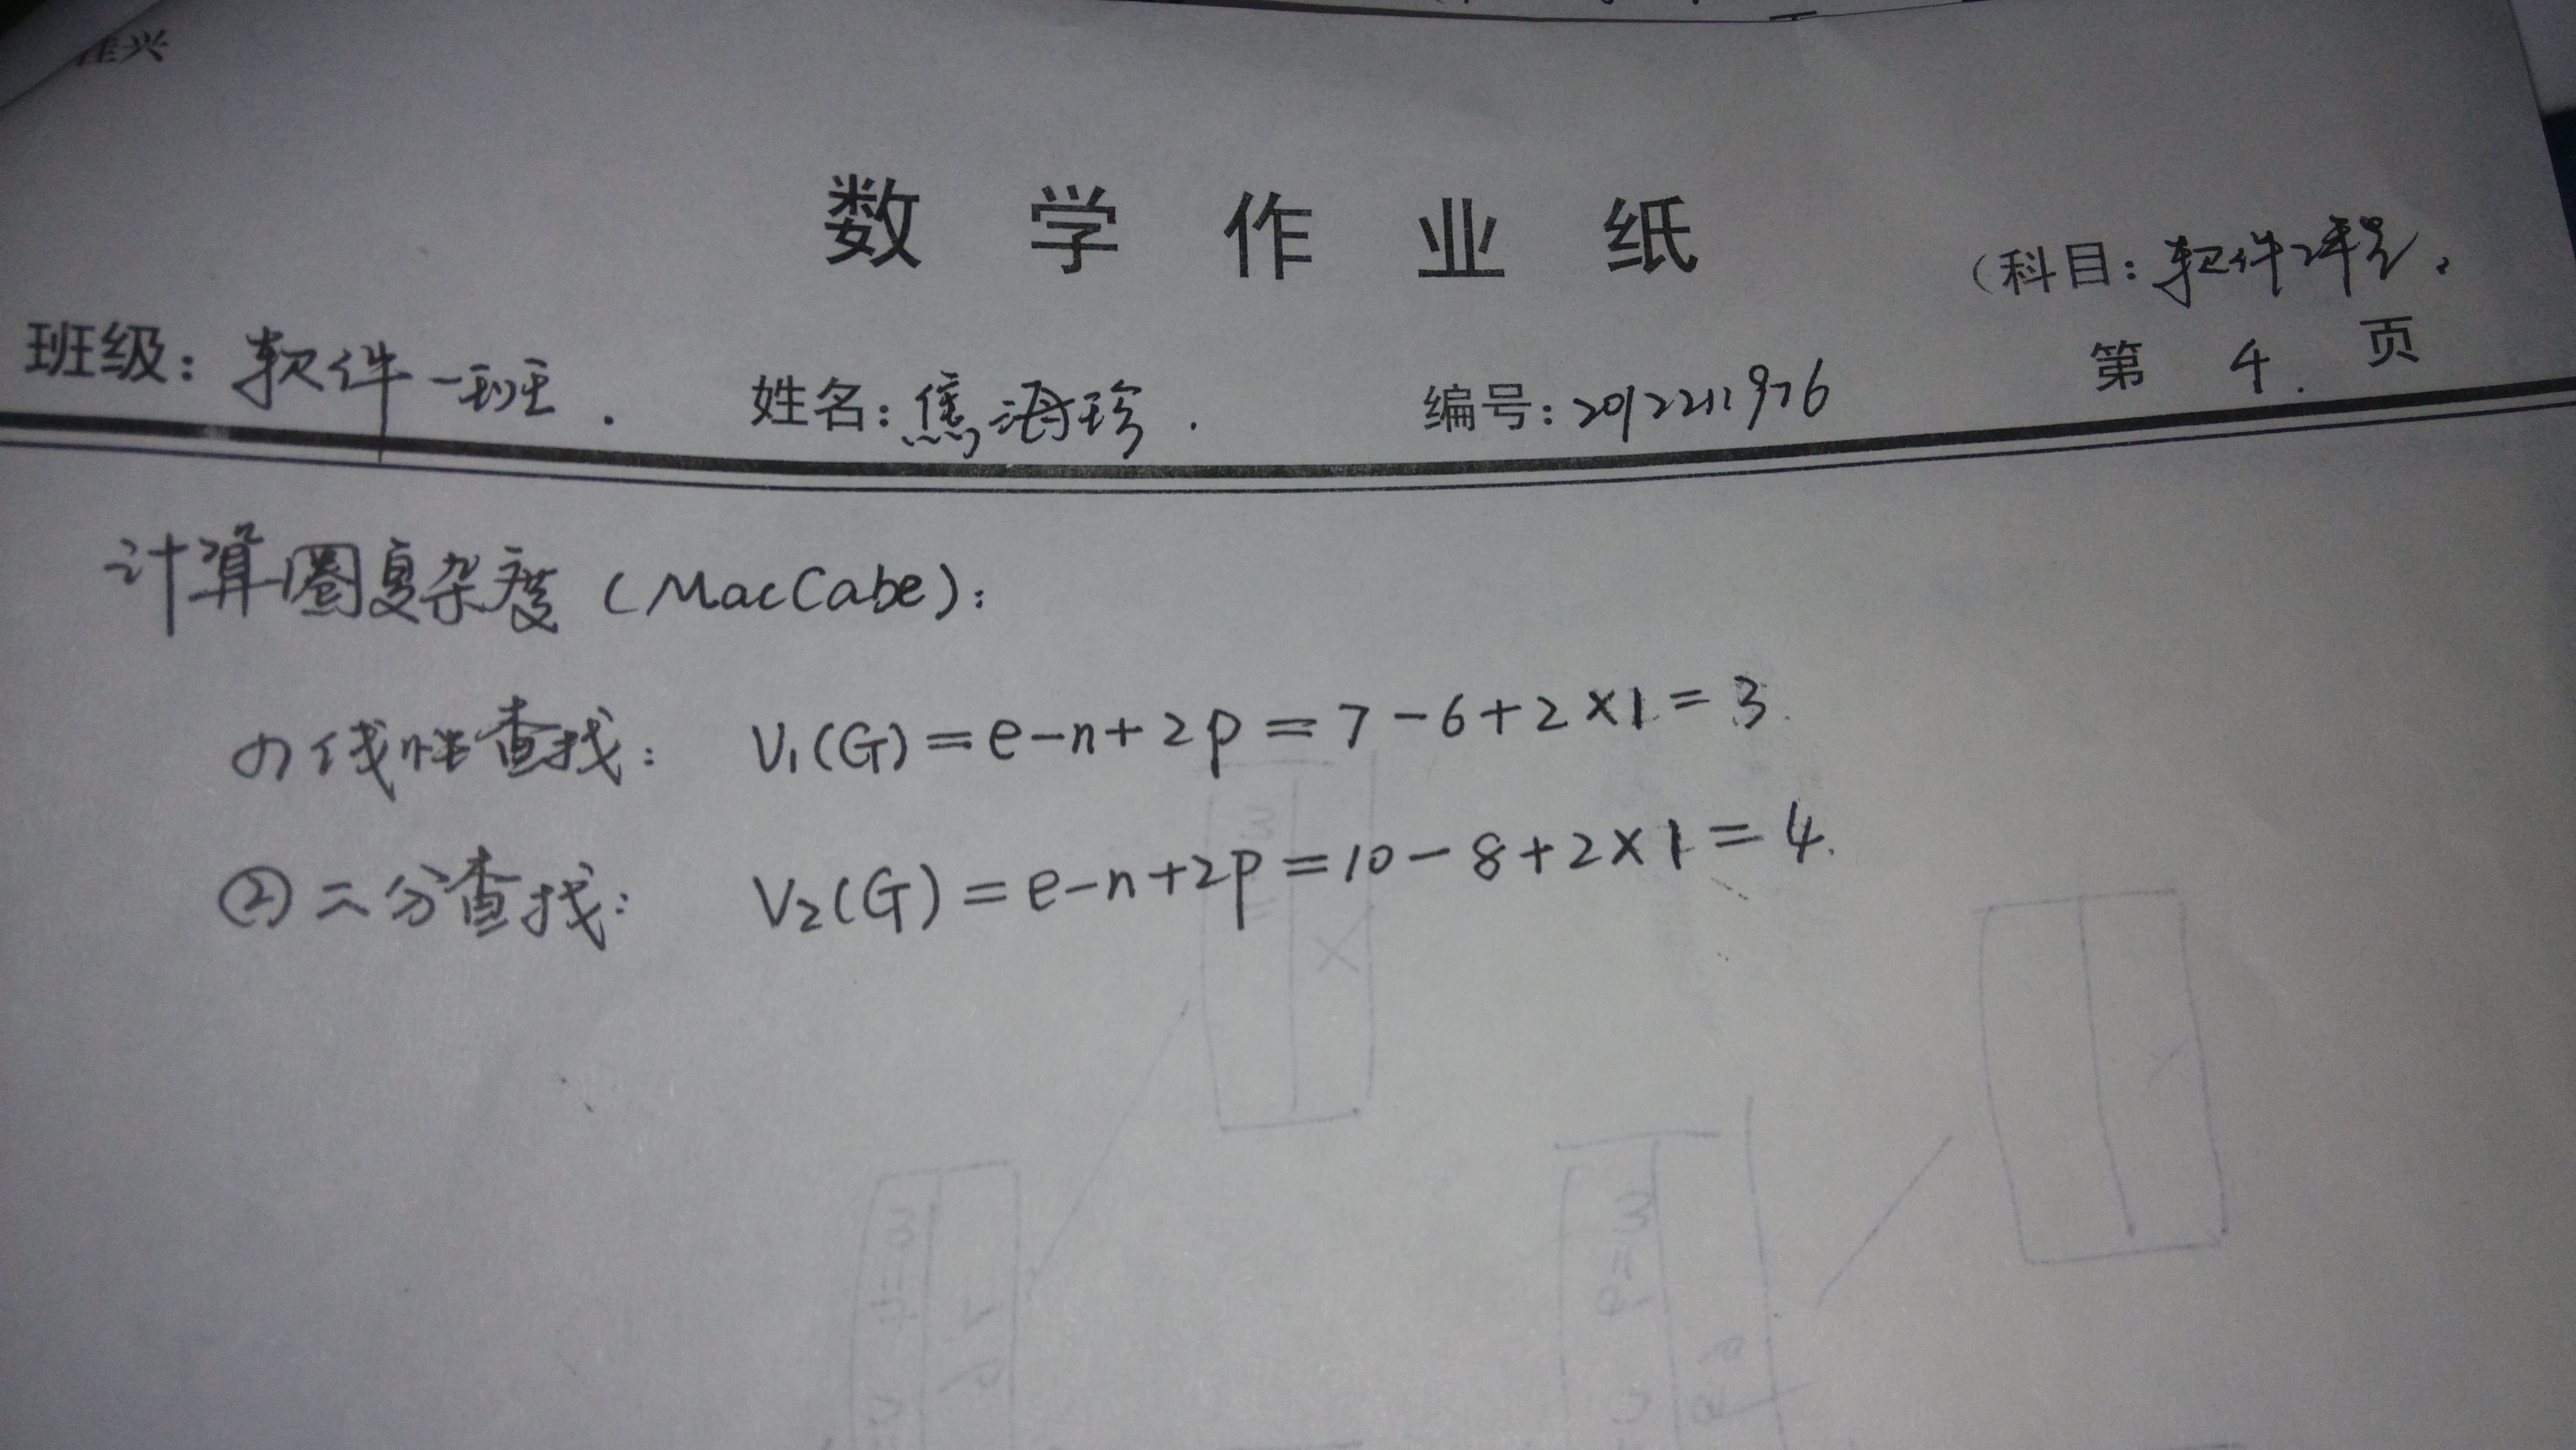 佳兴
数学作业纸
(科目:软件工程)
班级:软件一班.
姓名:焦海珍.
编号:2012211976
第 4. 页
计算圈复杂度(MacCabe):
①线性查找: V₁(G)=e-n+2p=7-6+2×1=3.
②二分查找: V₂(G)=e-n+2p=10-8+2×1=4.